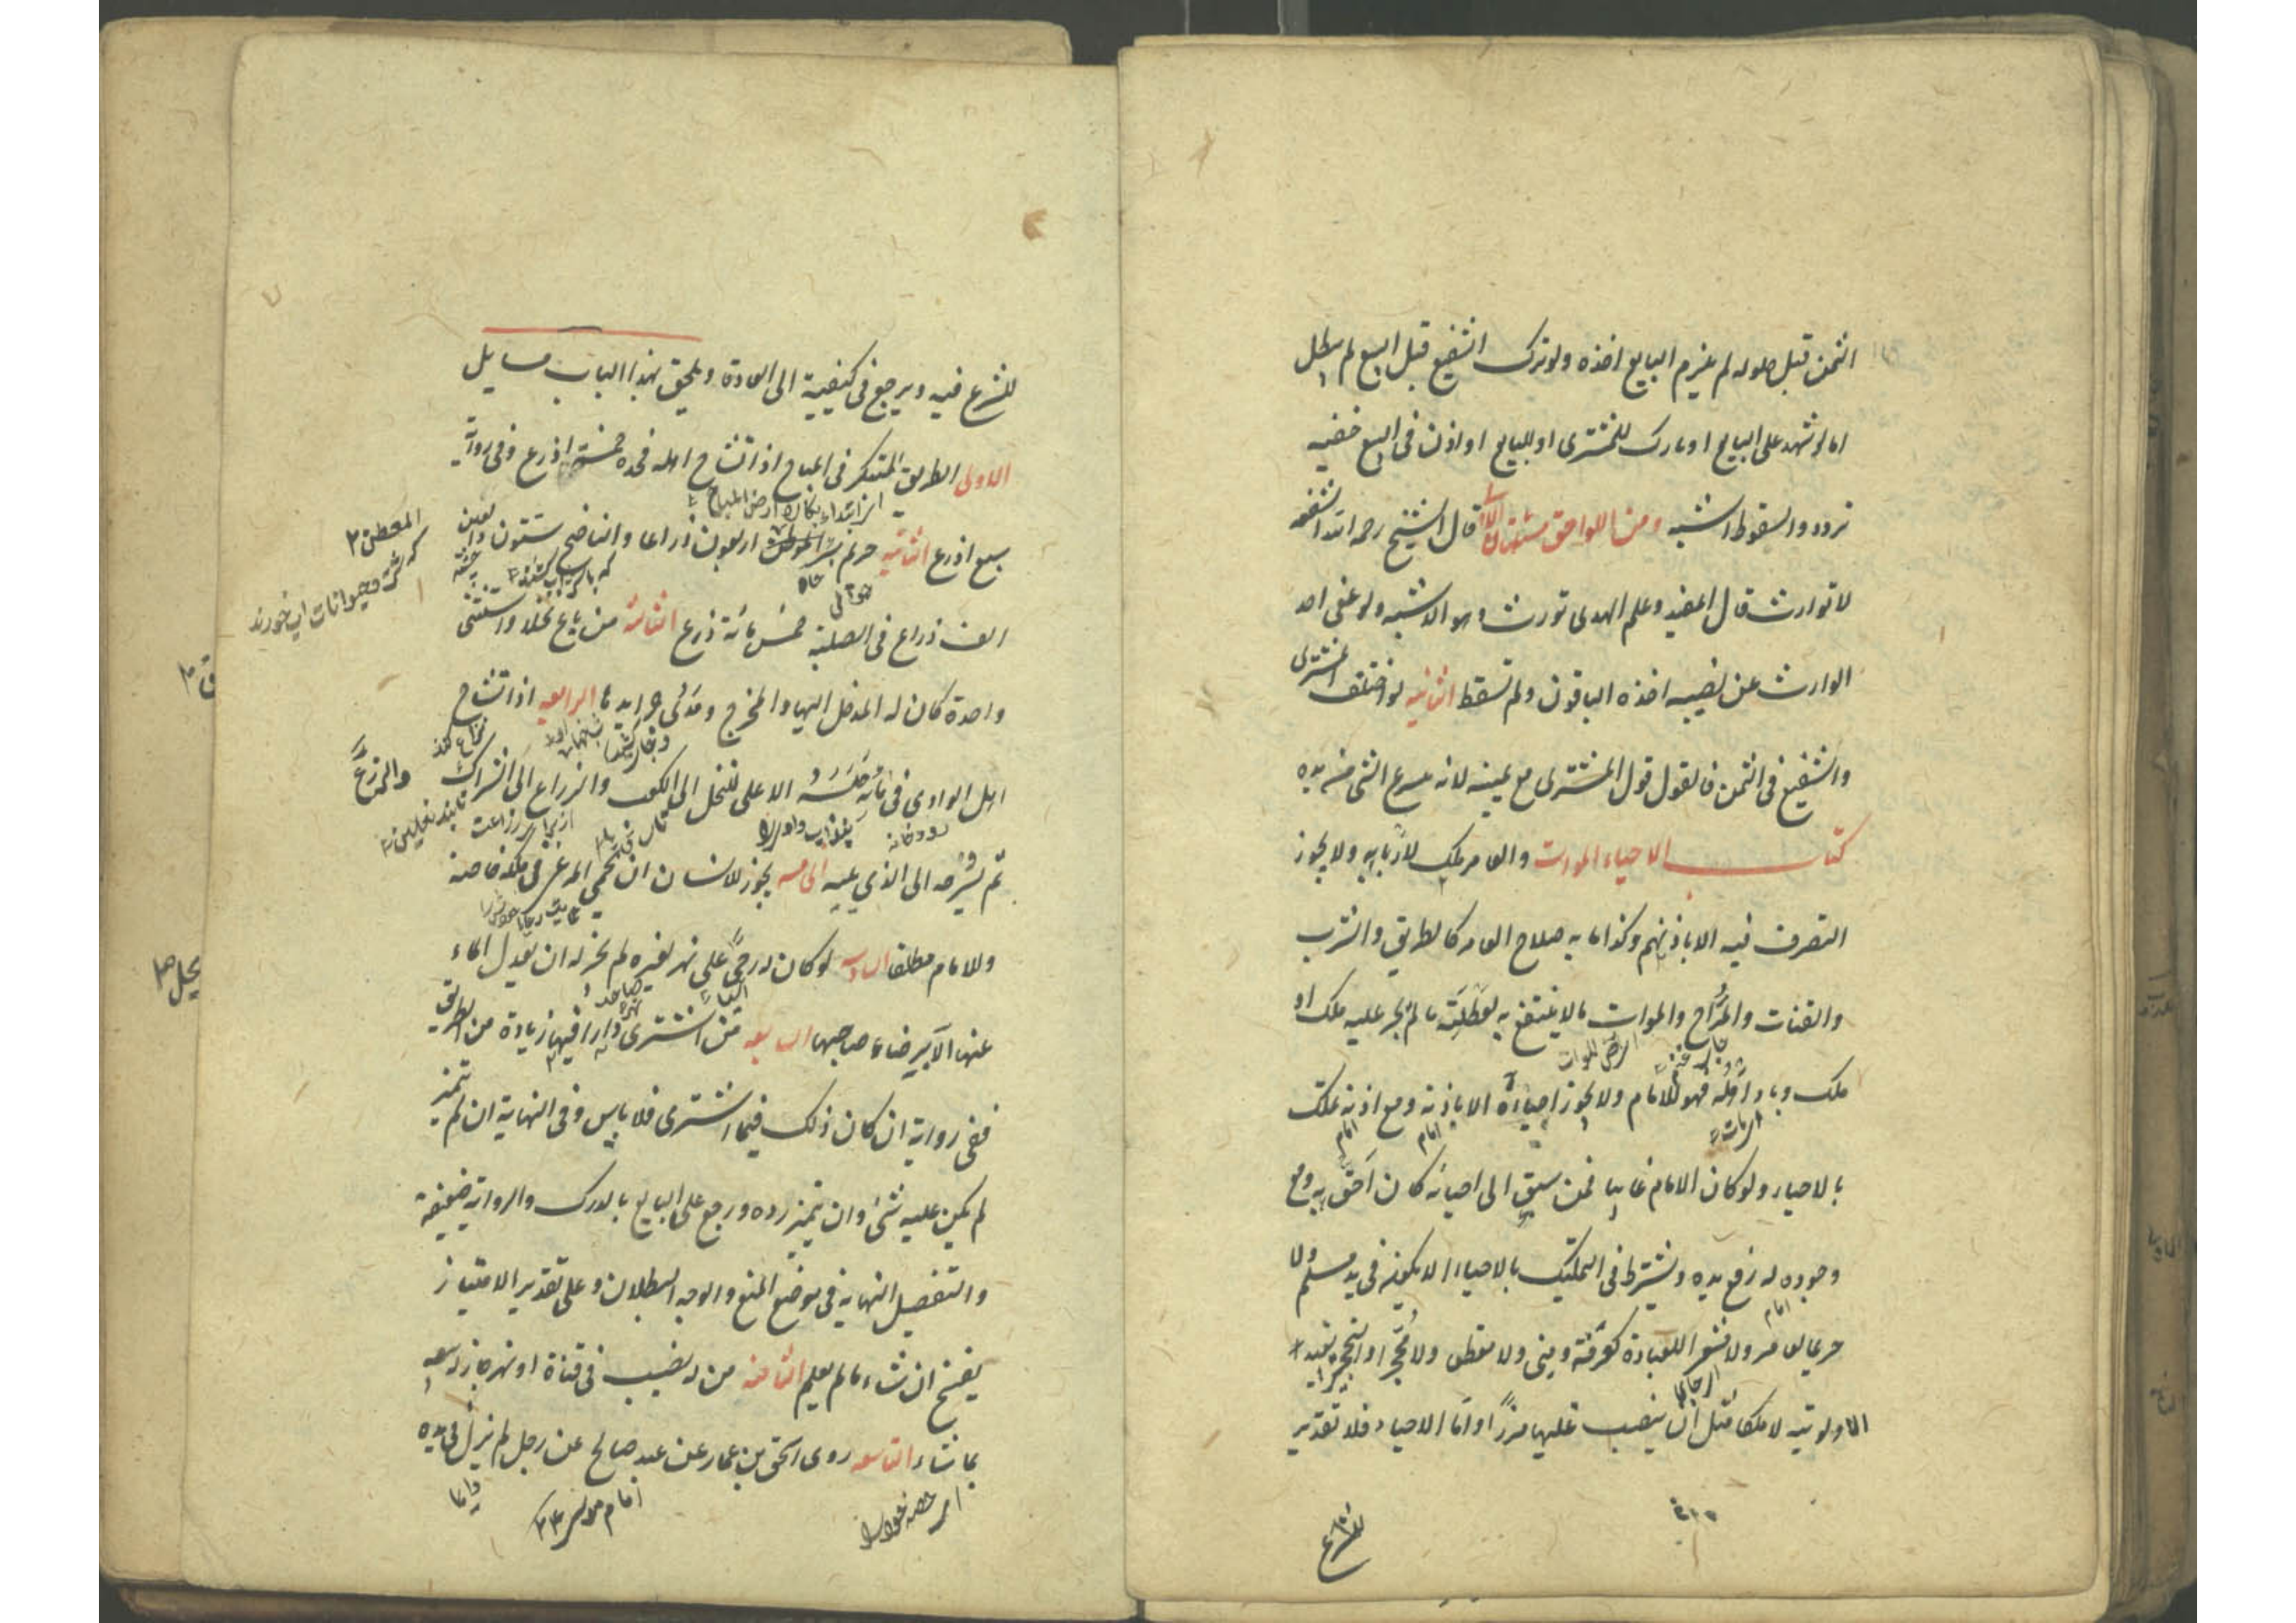 الثمن قبل حلوله لم يلزم البايع اخذه ولو ترك الشفيع قبل البيع لم يبطل
اما لو شهد على البايع او بارك للمشترى او للبايع او اذن فى البيع ففيه
تردد والسقوط اشبه ومن اللواحق مسئلتان الاولى قال الشيخ رحمه الله الشفعه
لا تورث قال المفيد وعلم الهدى تورث وهو الاشبه ولو عفى احد
الوارث عن نصيبه اخذه الباقون ولم تسقط الثانيه لو اختلف المشترى
والشفيع فى الثمن فالقول قول المشترى مع يمينه لانه ينتزع الشى من يده
كتاب الاحياء الموات والعامر ملك لاربابه ولا يجوز
التصرف فيه الا باذنهم وكذا ما به صلاح العامر كالطريق والشرب
والقنات والمراح والموات ما لا ينتفع به لعطلته ما لم يجر عليه ملك او
ارض الموات
ملك وباد اهله فهو للامام ولا يجوز احياءه الا باذنه ومع اذنه تملك
امام
امام
بالاحياء ولو كان الامام غايبا فمن سبق الى احيائه كان احق به ومع
وجوده له رفع يده ويشترط فى التمليك بالاحياء الا يكون فى يد مسلم ولا
امام
حريما لعامر ولا مشعرا للعبادة كعرفة ومنى ولا مقطعا ولا محجرا والتحجير يفيد
الاولوية لا ملكا مثل ان ينصب عليها مرزا واما الاحياء فلا تقدير
للشرع
للشرع فيه ويرجع فى كيفيته الى العادة ويلحق بهذا الباب مسايل
الاولى الطريق المبتكر فى المباح اذا تشاح اهله فحده خمس اذرع وفى رواية
سبع اذرع الثانيه حريم بئر المعطن اربعون ذراعا والناضح ستون والعين
المعطن
كه شتر وحيوانات اب خورند
چاه
الف ذراع فى الصلبة خمس مائة ذرع الثالثة من باع نخلا واستثنى
واحدة كان له المدخل اليها والمخرج ومدى جرايدها الرابعه اذا تشاح
اهل الوادى فى مائه حبسه الاعلى للنخل الى الكعب والزراع الى الشراك
والزرع
رودخانه
ثم يسرحه الى الذي يليه الخامسه يجوز للانسان ان يحمي المرعى فى ملكه خاصة
وللامام مطلقا السادسه لو كان له رحى على نهر لغيره لم يجز له ان يعدل الماء
عنها الا برضاء صاحبها السابعه من اشترى دارا فيها زيادة من الطريق
ففى رواية ان كان ذلك فيما اشترى فلا باس وفى النهاية ان لم يتميز
لم يكن عليه شئ وان تميز رده ورجع على البايع بالدرك والرواية ضعيفة
والتفصيل النهاية فى موضع المنع والوجه البطلان وعلى تقدير الامتياز
يفسخ ان شاء ما لم يعلم الثامنه من له نصيب فى قناة او نهر جاز له بيعه
بما شاء التاسعه روى اسحق بن عمار عن عبد صالح عن رجل لم يزل فى يده
اى حصه خود را
امام موسى